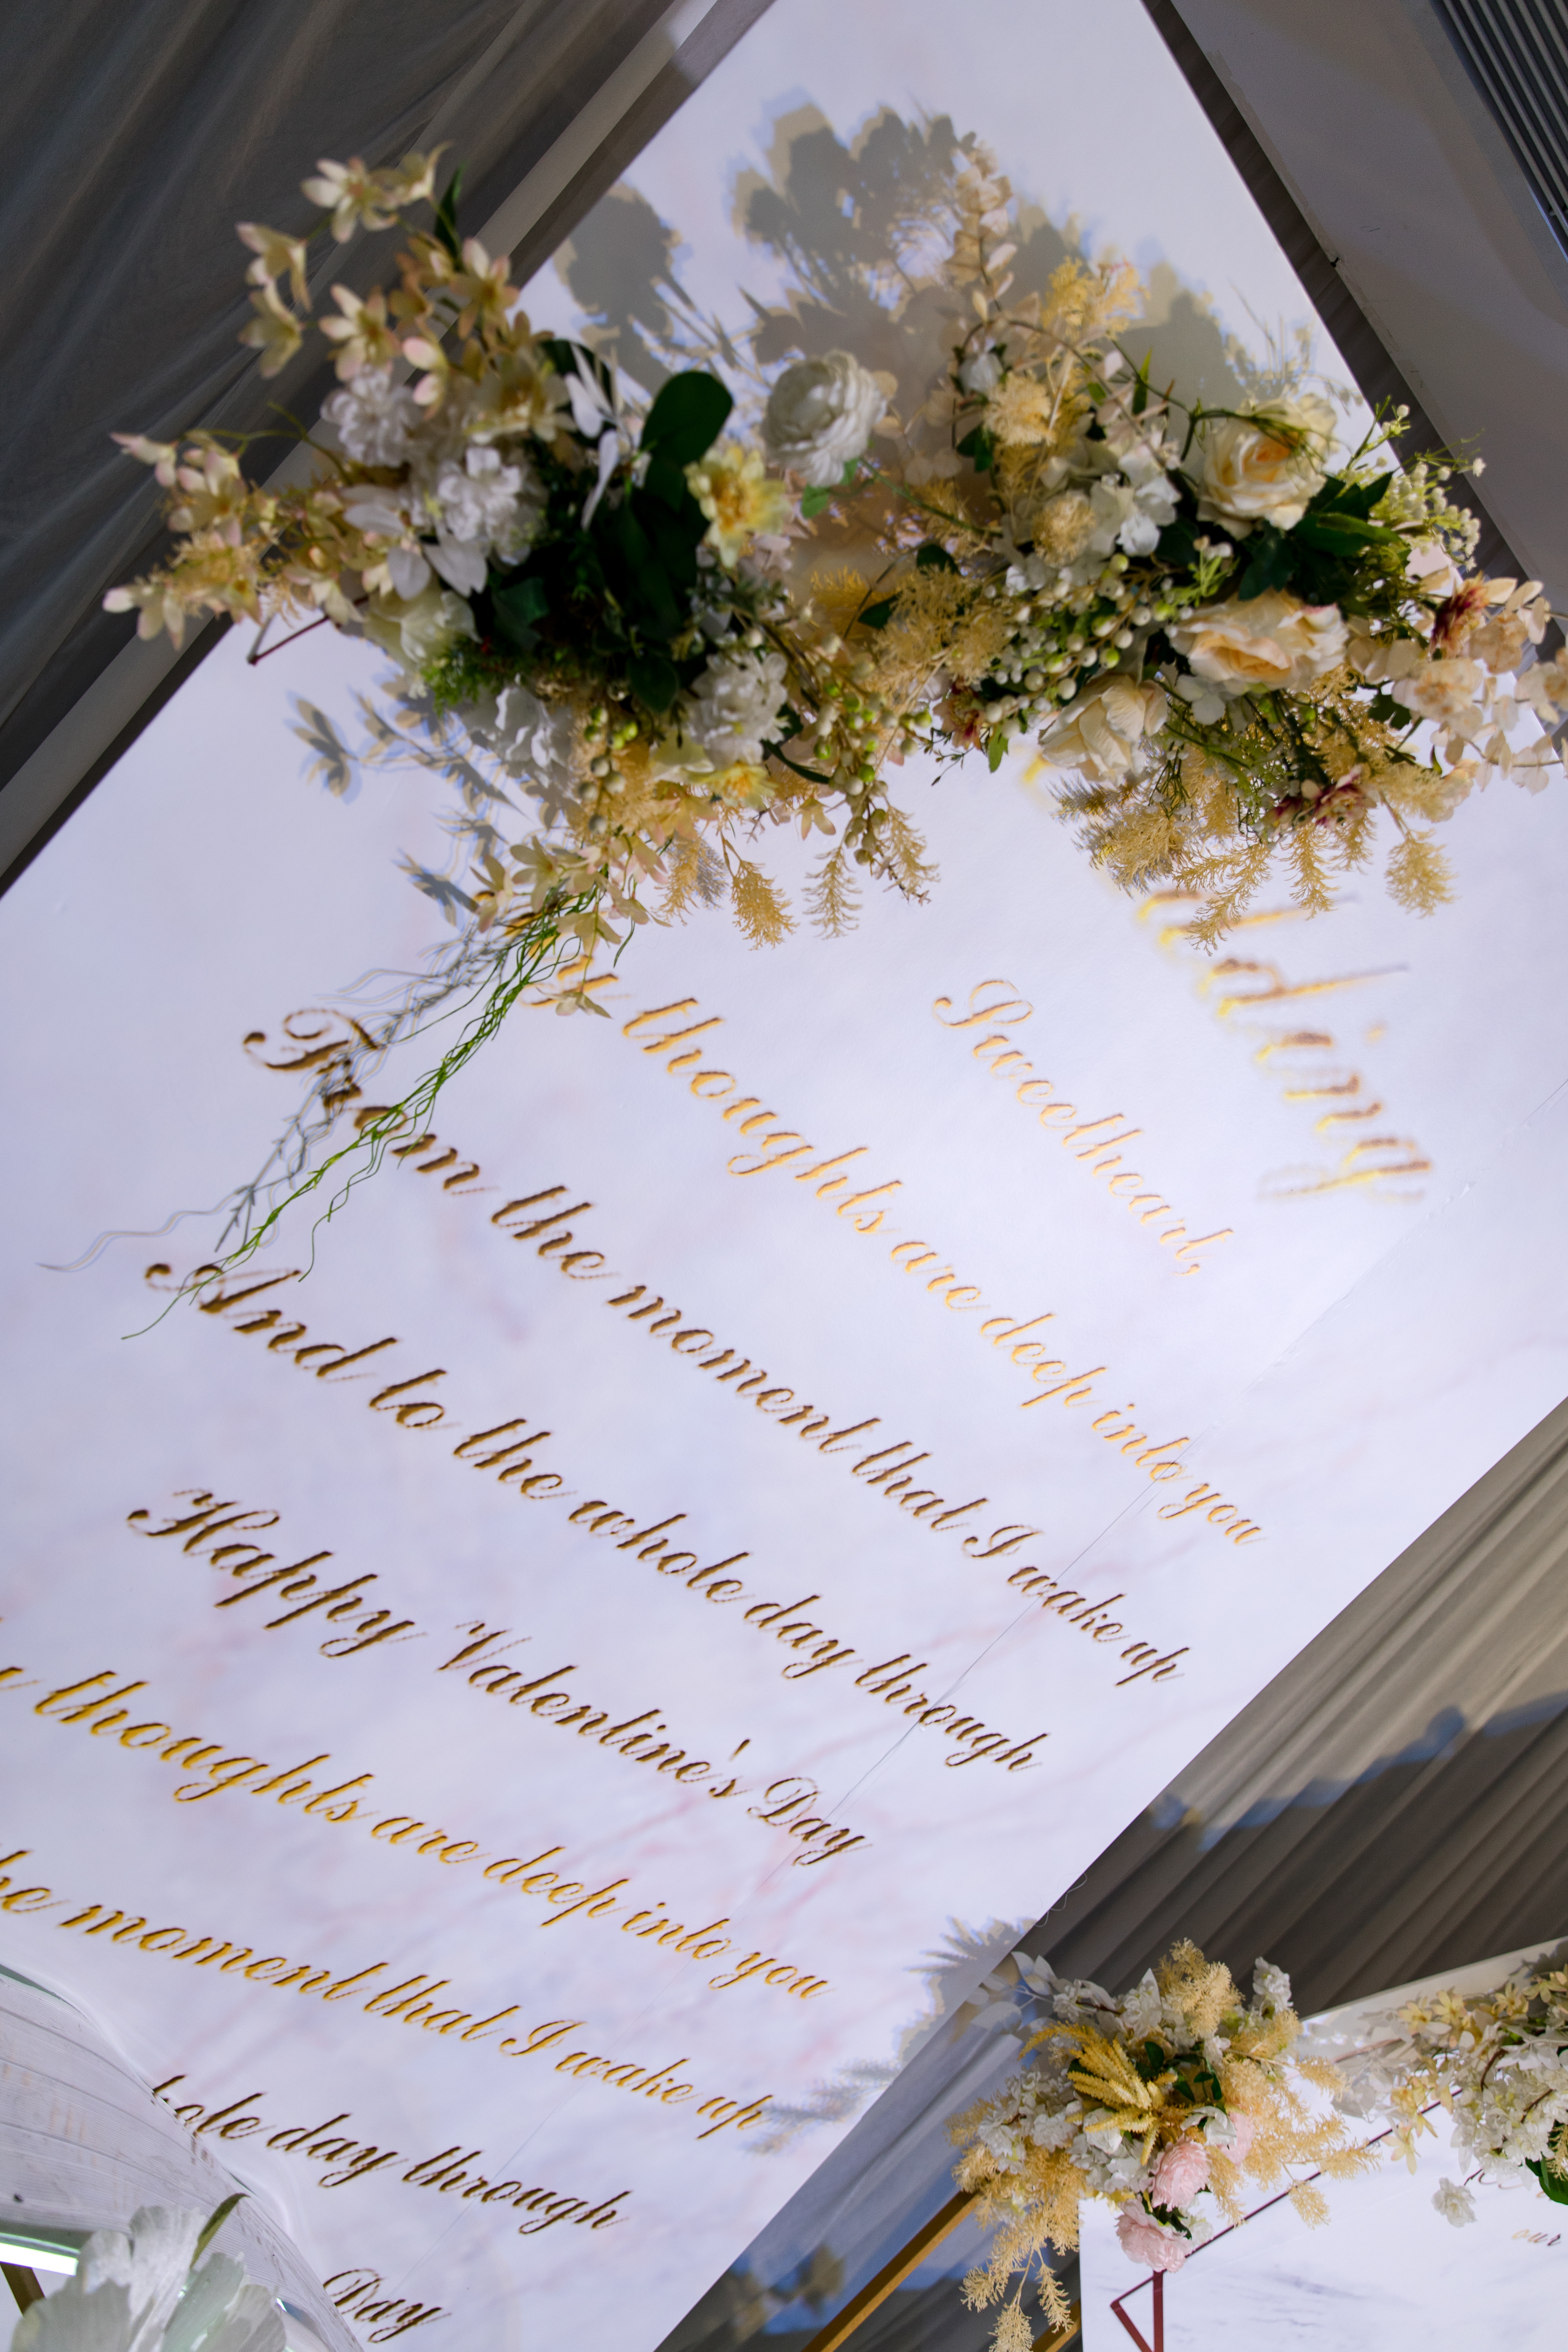 dding
Sweetheart,
thoughts are deep into you
From the moment that I wake up
And to the whole day through
Happy Valentine's Day
thoughts are deep into you
moment that I wake up
day through
Day
our